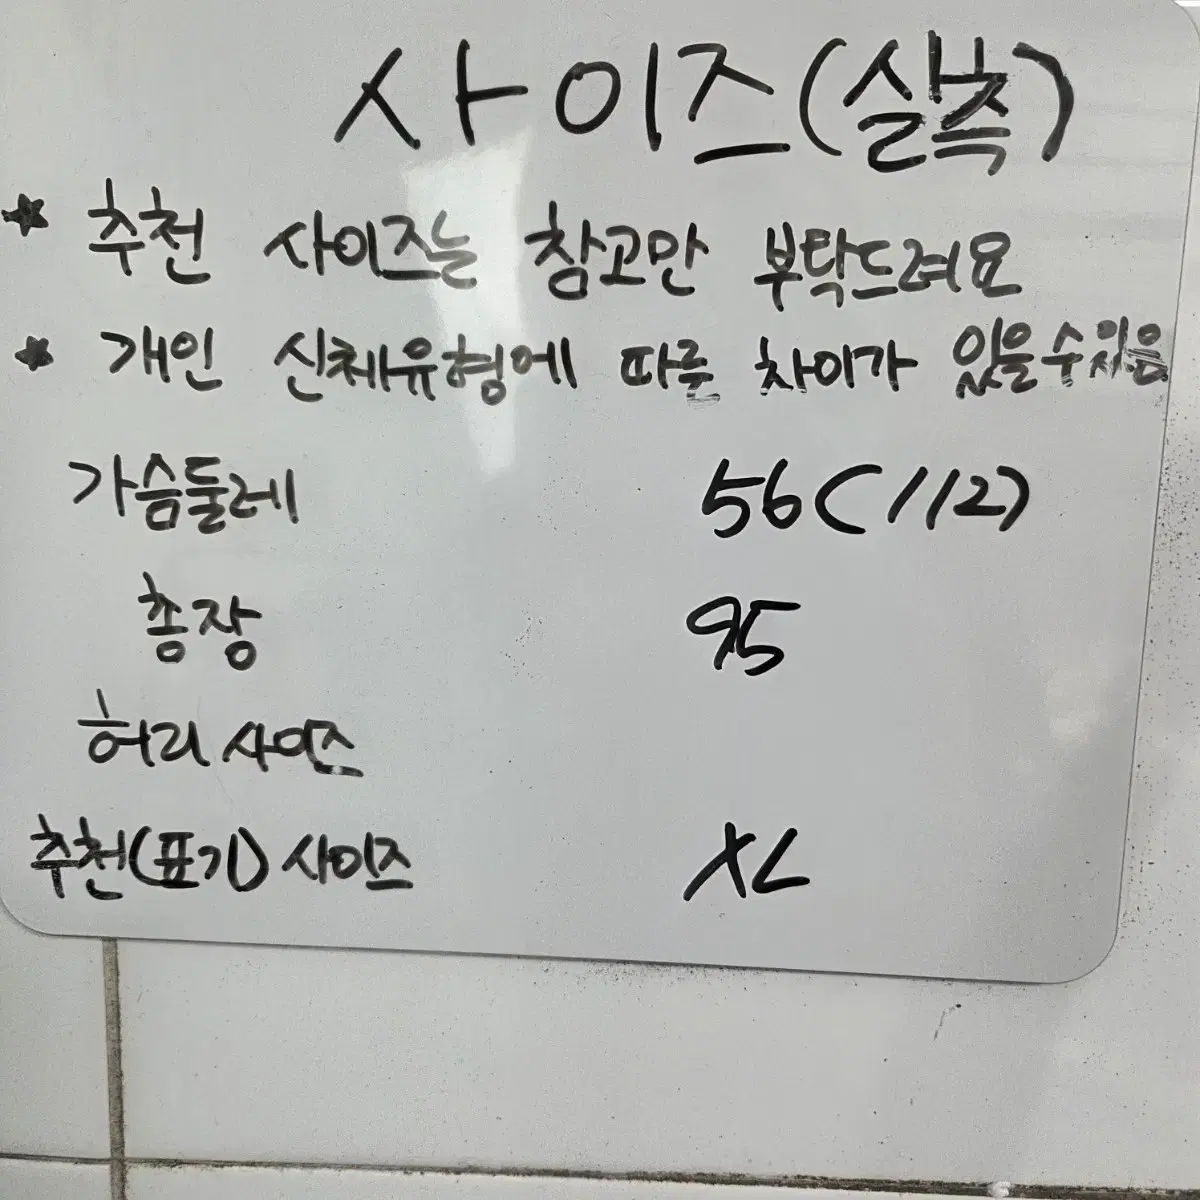 사이즈(실측)
★ 추천 사이즈는 참고만 부탁드려요
★ 개인 신체유형에 따른 차이가 있을수있음
가슴둘레 56(112)
총장 95
허리 사이즈
추천(표기) 사이즈 XL